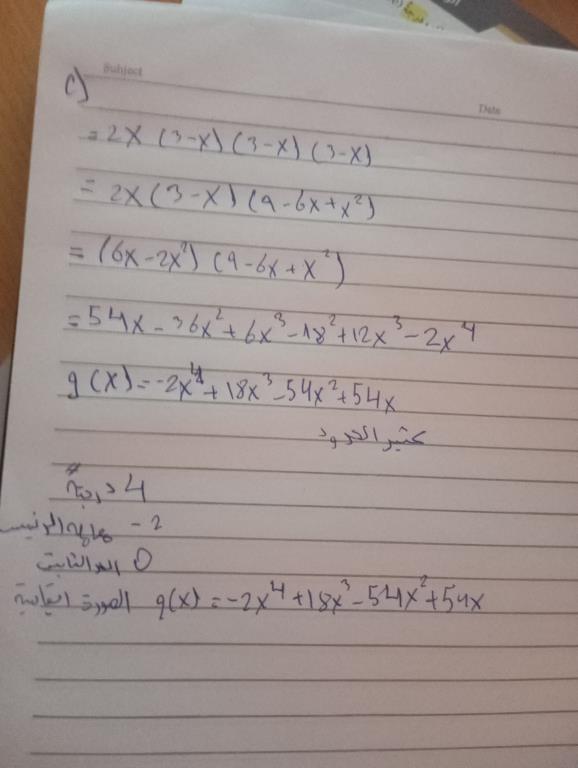 Subject
Date
c)
= 2x (3-x) (3-x) (3-x)
= 2x (3-x) (9-6x+x²)
= (6x-2x²) (9-6x+x²)
= 54x - 36x² + 6x³ - 18² + 12x³ - 2x⁴
g(x) = -2x⁴ + 18x³ - 54x² + 54x
كثير الحدود
4 درجة
-2
0 الحد الثابت
الصورة القياسية g(x) = -2x⁴ + 18x³ - 54x² + 54x